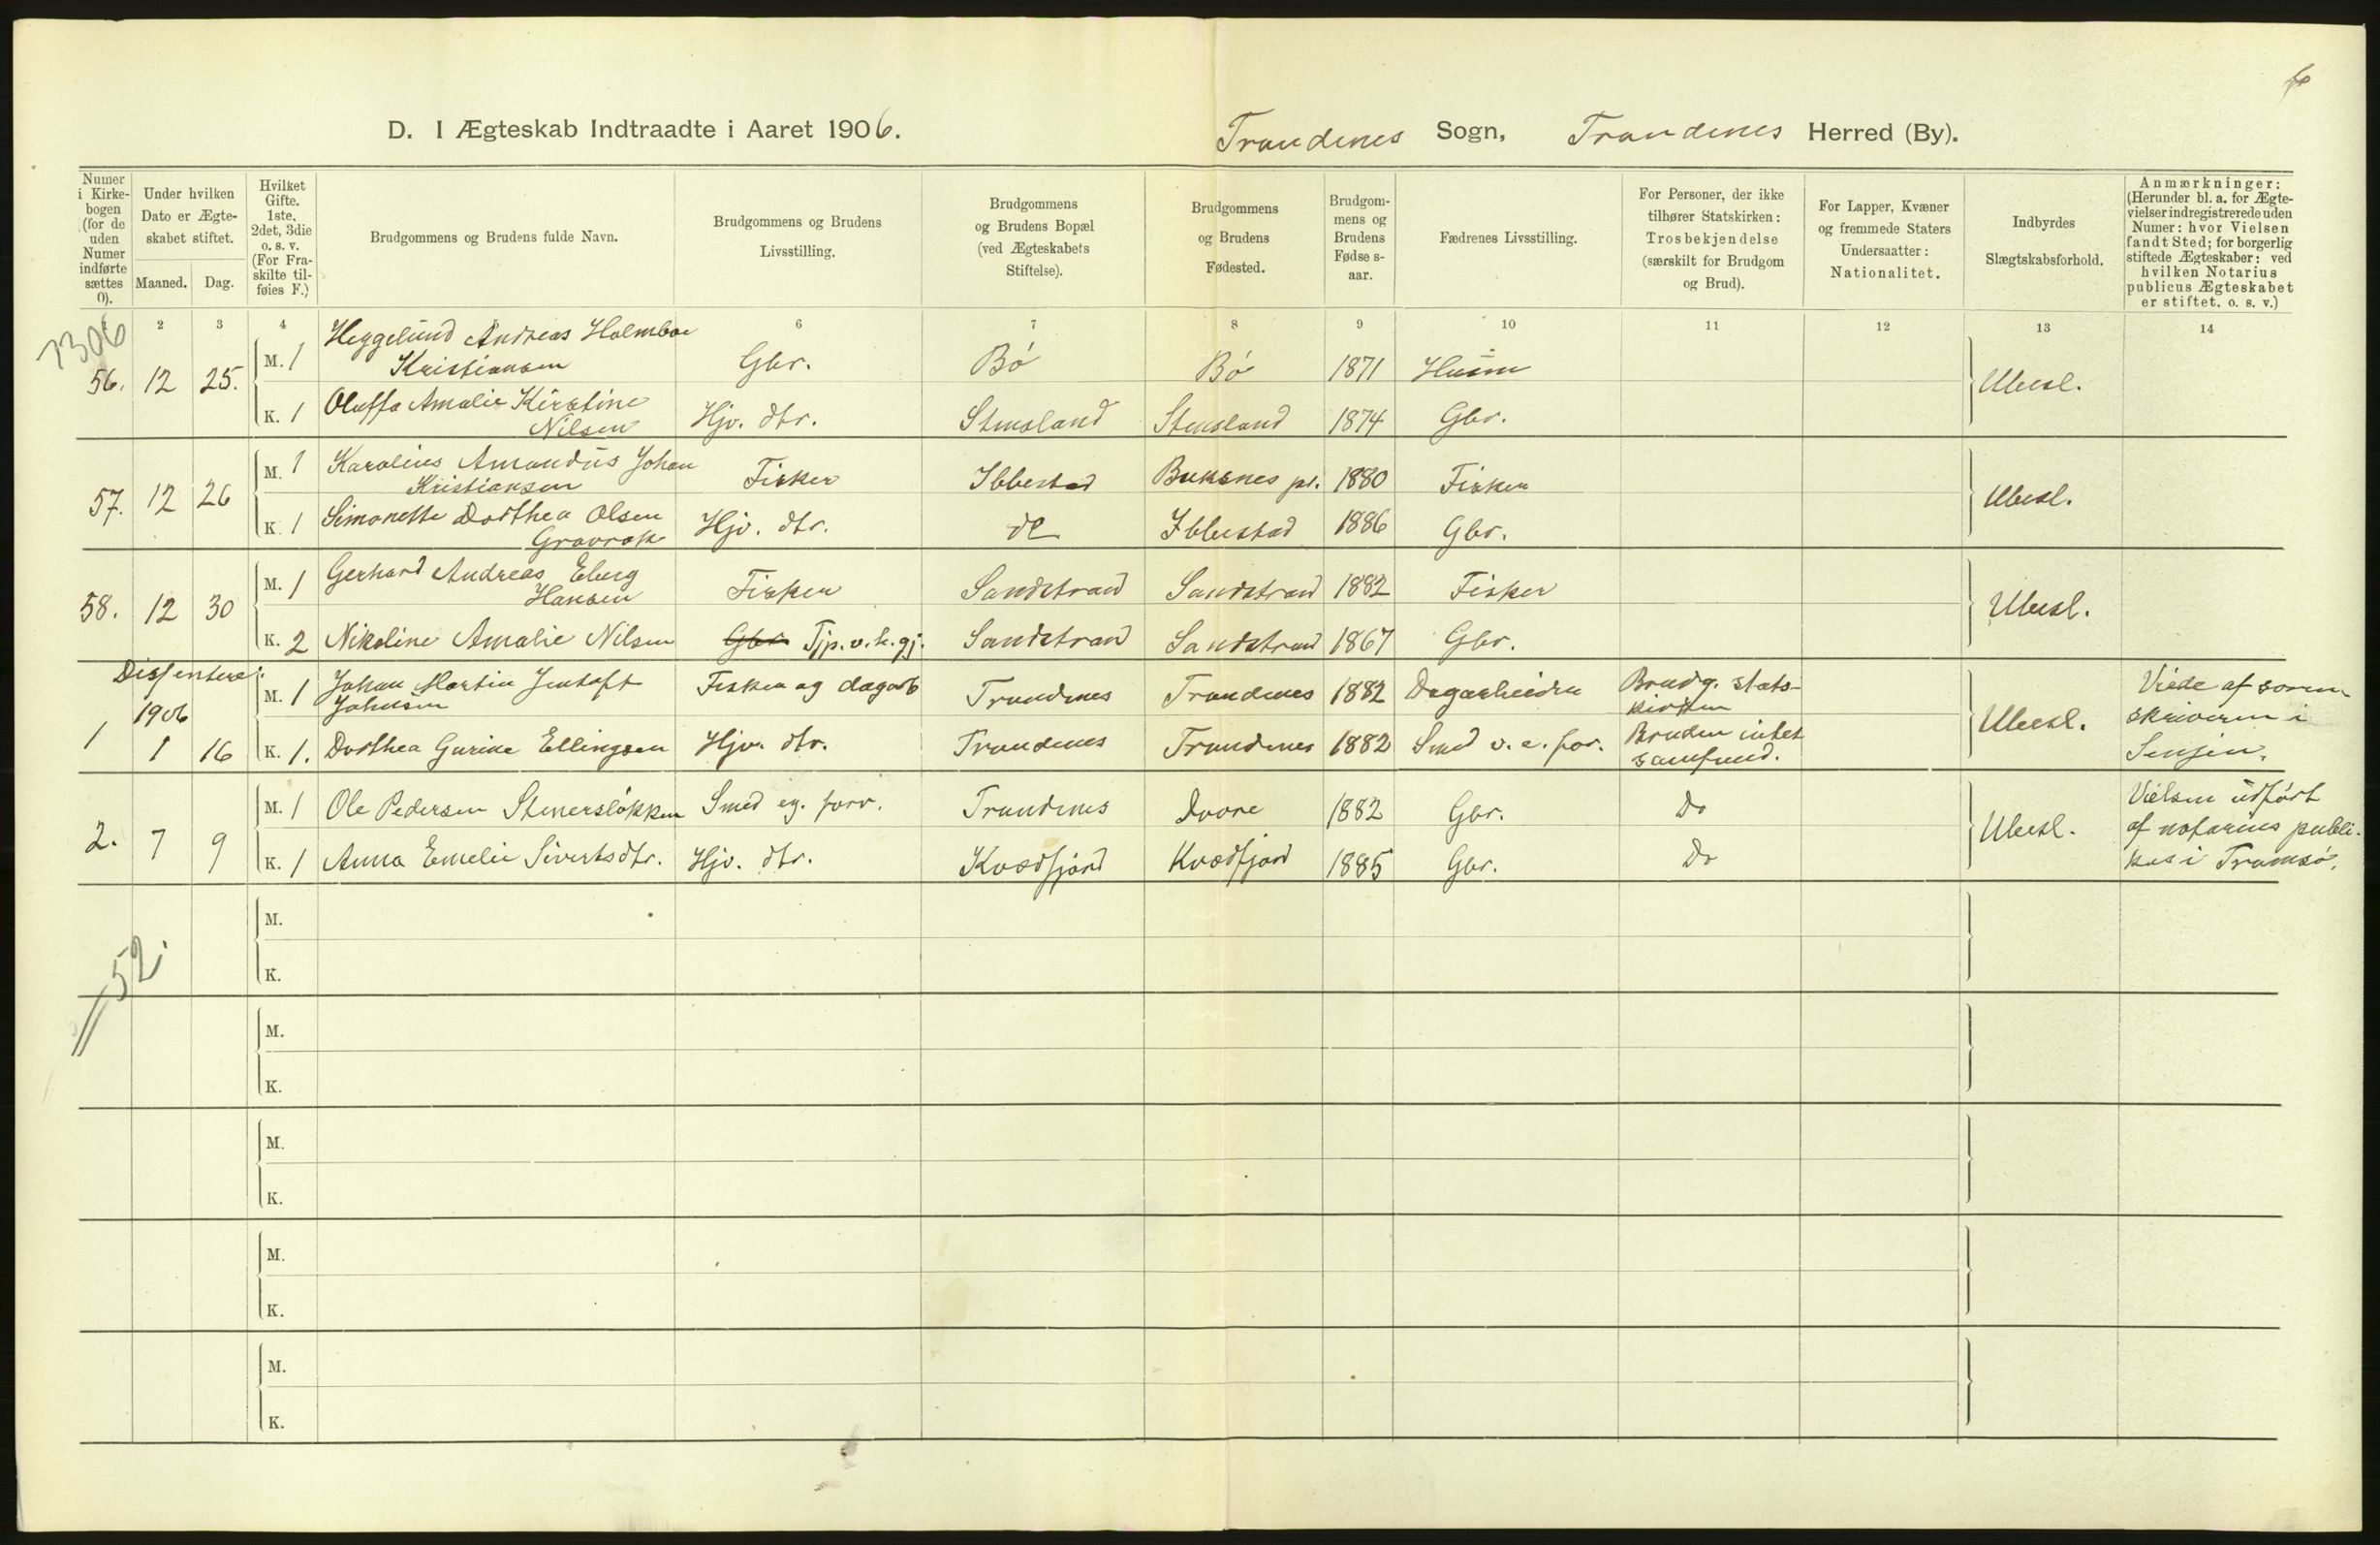 6
D. I Ægteskab Indtraadte i Aaret 1906.
Trondenes Sogn, Trondenes Herred (By).
Numer i Kirkebogen (for de uden Numer indførte sættes 0).
Under hvilken Dato er Ægteskabet stiftet.
Maaned. Dag.
Hvilket Gifte. 1ste, 2det, 3die o. s. v. (For Fraskilte tilføies F.)
Brudgommens og Brudens fulde Navn.
Brudgommens og Brudens Livsstilling.
Brudgommens og Brudens Bopæl (ved Ægteskabets Stiftelse).
Brudgommens og Brudens Fødested.
Brudgommens og Brudens Fødselsaar.
Fædrenes Livsstilling.
For Personer, der ikke tilhører Statskirken: Trosbekjendelse (særskilt for Brudgom og Brud).
For Lapper, Kvæner og fremmede Staters Undersaatter: Nationalitet.
Indbyrdes Slægtskabsforhold.
Anmærkninger: (Herunder bl. a. for Ægtevielser indregistrerede uden Numer: hvor Vielsen fandt Sted; for borgerlig stiftede Ægteskaber: ved hvilken Notarius publicus Ægteskabet er stiftet. o. s. v.)
2 3 4 6 7 8 9 10 11 12 13 14
7306
56. 12 25. M. 1 Heggelund Andreas Holmboe Kristiansen Gbr. Bö Bö 1871 Husm Ubesl.
K. 1 Oluffa Amalie Kirstine Nilsen Hjv. dtr. Stensland Stensland 1874 Gbr.
57. 12 26 M. 1 Karolius Amandus Johan Kristiansen Fisker Ibbestad Buksnes pr. 1880 Fisker Ubesl.
K. 1 Simonette Dorthea Olsen Gravrok Hjv. dtr. do Ibbestad 1886 Gbr.
58. 12 30 M. 1 Gerhard Andreas Eberg Hansen Fisker Sandstrand Sandstrand 1882 Fisker Ubesl.
K. 2 Nikoline Amalie Nilsen Gbr Tjp. v. h. gj. Sandstrand Sandstrand 1867 Gbr.
Dissentere:
1906
1 1 16 M. 1 Johan Martin Jentoft Johnsen Fisker og dagarb Trondenes Trondenes 1882 Dagarbeider Brudg. statskirken Ubesl. Viede af sorenskriveren i Senjen.
K. 1. Dorthea Gurine Ellingsen Hjv. dtr. Trondenes Trondenes 1882 Smed v. e. for. Bruden intet samfund.
2. 7 9 M. 1 Ole Pedersen Stenersløkken Smed eg. forr. Trondenes Dovre 1882 Gbr. Do Ubesl. Vielsen udført af notarius publikus i Tromsø.
K. 1 Anna Emelie Sivertsdtr. Hjv. dtr. Kvædfjord Kvædfjord 1885 Gbr. Do
M.
K.
52.
M.
K.
M.
K.
M.
K.
M.
K.